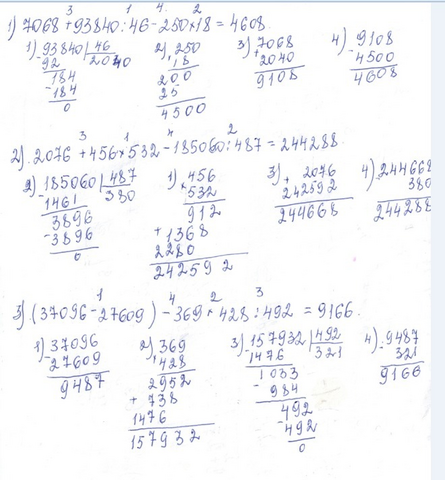 1) 7068 + 93840 : 46 - 250 × 18 = 4608.
3 1 4 2
1) 93840 | 46 2) 250 3) 7068 4) 9108
- 92 2040 × 18 + 2040 - 4500
184 200 9108 4608
- 184 25
0 4500
2) 2076 + 456 × 532 - 185060 : 487 = 244288.
3 1 4 2
2) 185060 | 487 1) 456 3) 2076 4) 244668
- 1461 380 × 532 + 242592 380
3896 912 244668 244288
- 3896 + 1368
0 2280
242592
3) (37096 - 27609) - 369 × 428 : 492 = 9166.
1 4 2 3
1) 37096 2) 369 3) 157932 | 492 4) 9487
- 27609 × 428 - 1476 321 - 321
9487 2952 1033 9166
+ 738 - 984
1476 492
157932 - 492
0